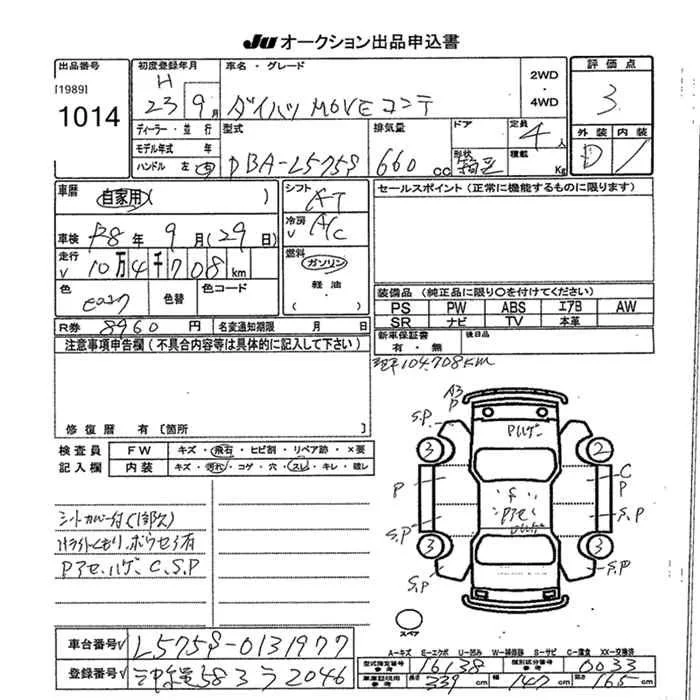 JU オークション出品申込書
出品番号
[1989]
1014
初度登録年月
H
23 9月
車名・グレード
ダイハツ MOVE コンテ
2WD
・
4WD
評価点
3
外装 内装
D
ディーラー・並行
モデル年式 年
ハンドル 左・右
型式
DBA-L575S
排気量
660 cc
ドア
形状
箱型
定員
4人
積載
Kg
車暦
自家用( )
シフト
AT
セールスポイント(正常に機能するものに限ります)
車検 R8年 9月(29日)
冷房
A/C
走行
10万4千708km
燃料
ガソリン
軽油
・
色
色替
色コード
装備品(純正品に限り○を付けてください)
PS PW ABS エアB AW
SR ナビ TV 本革
R券 8960円
名変通知期限 月 日
新車保証書
有・無
後日品
注意事項申告欄(不具合内容等は具体的に記入して下さい)
104.708km
修復歴 有〔箇所 〕
検査員
記入欄
FW キズ・飛石・ヒビ割・リペア跡・×要
内装 キズ・汚れ・コゲ・穴・スレ・キレ・破レ
シートカバー付(1部欠)
ハゲ、C、S.P
A3
P
S.P
Pハゲ
3
2
P
C
P
S.P
S.P
3
3
S.P
S.P
スペア
車台番号 L575S-0131977
A-キズ E-エクボ U-凹み W-補修跡 S-サビ C-腐食 XX-交換済
型式指定番号
参考
16138
類別区分番号
参考
0033
登録番号
583 ラ 2046
車車証記用
参考
長さ
339 cm
幅
147 cm
高さ
165 cm